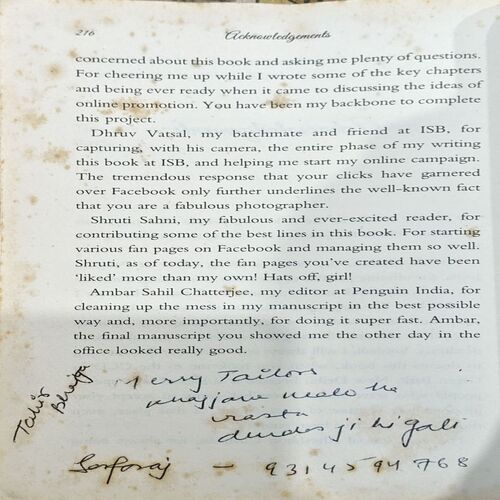 216
Acknowledgements
concerned about this book and asking me plenty of questions.
For cheering me up while I wrote some of the key chapters
and being ever ready when it came to discussing the ideas of
online promotion. You have been my backbone to complete
this project.
Dhruv Vatsal, my batchmate and friend at ISB, for
capturing, with his camera, the entire phase of my writing
this book at ISB, and helping me start my online campaign.
The tremendous response that your clicks have garnered
over Facebook only further underlines the well-known fact
that you are a fabulous photographer.
Shruti Sahni, my fabulous and ever-excited reader, for
contributing some of the best lines in this book. For starting
various fan pages on Facebook and managing them so well.
Shruti, as of today, the fan pages you've created have been
'liked' more than my own! Hats off, girl!
Ambar Sahil Chatterjee, my editor at Penguin India, for
cleaning up the mess in my manuscript in the best possible
way and, more importantly, for doing it super fast. Ambar,
the final manuscript you showed me the other day in the
office looked really good.
Merry Tailors
rasta
ji ki gali
Tahir
Sarfaraj - 9314594768